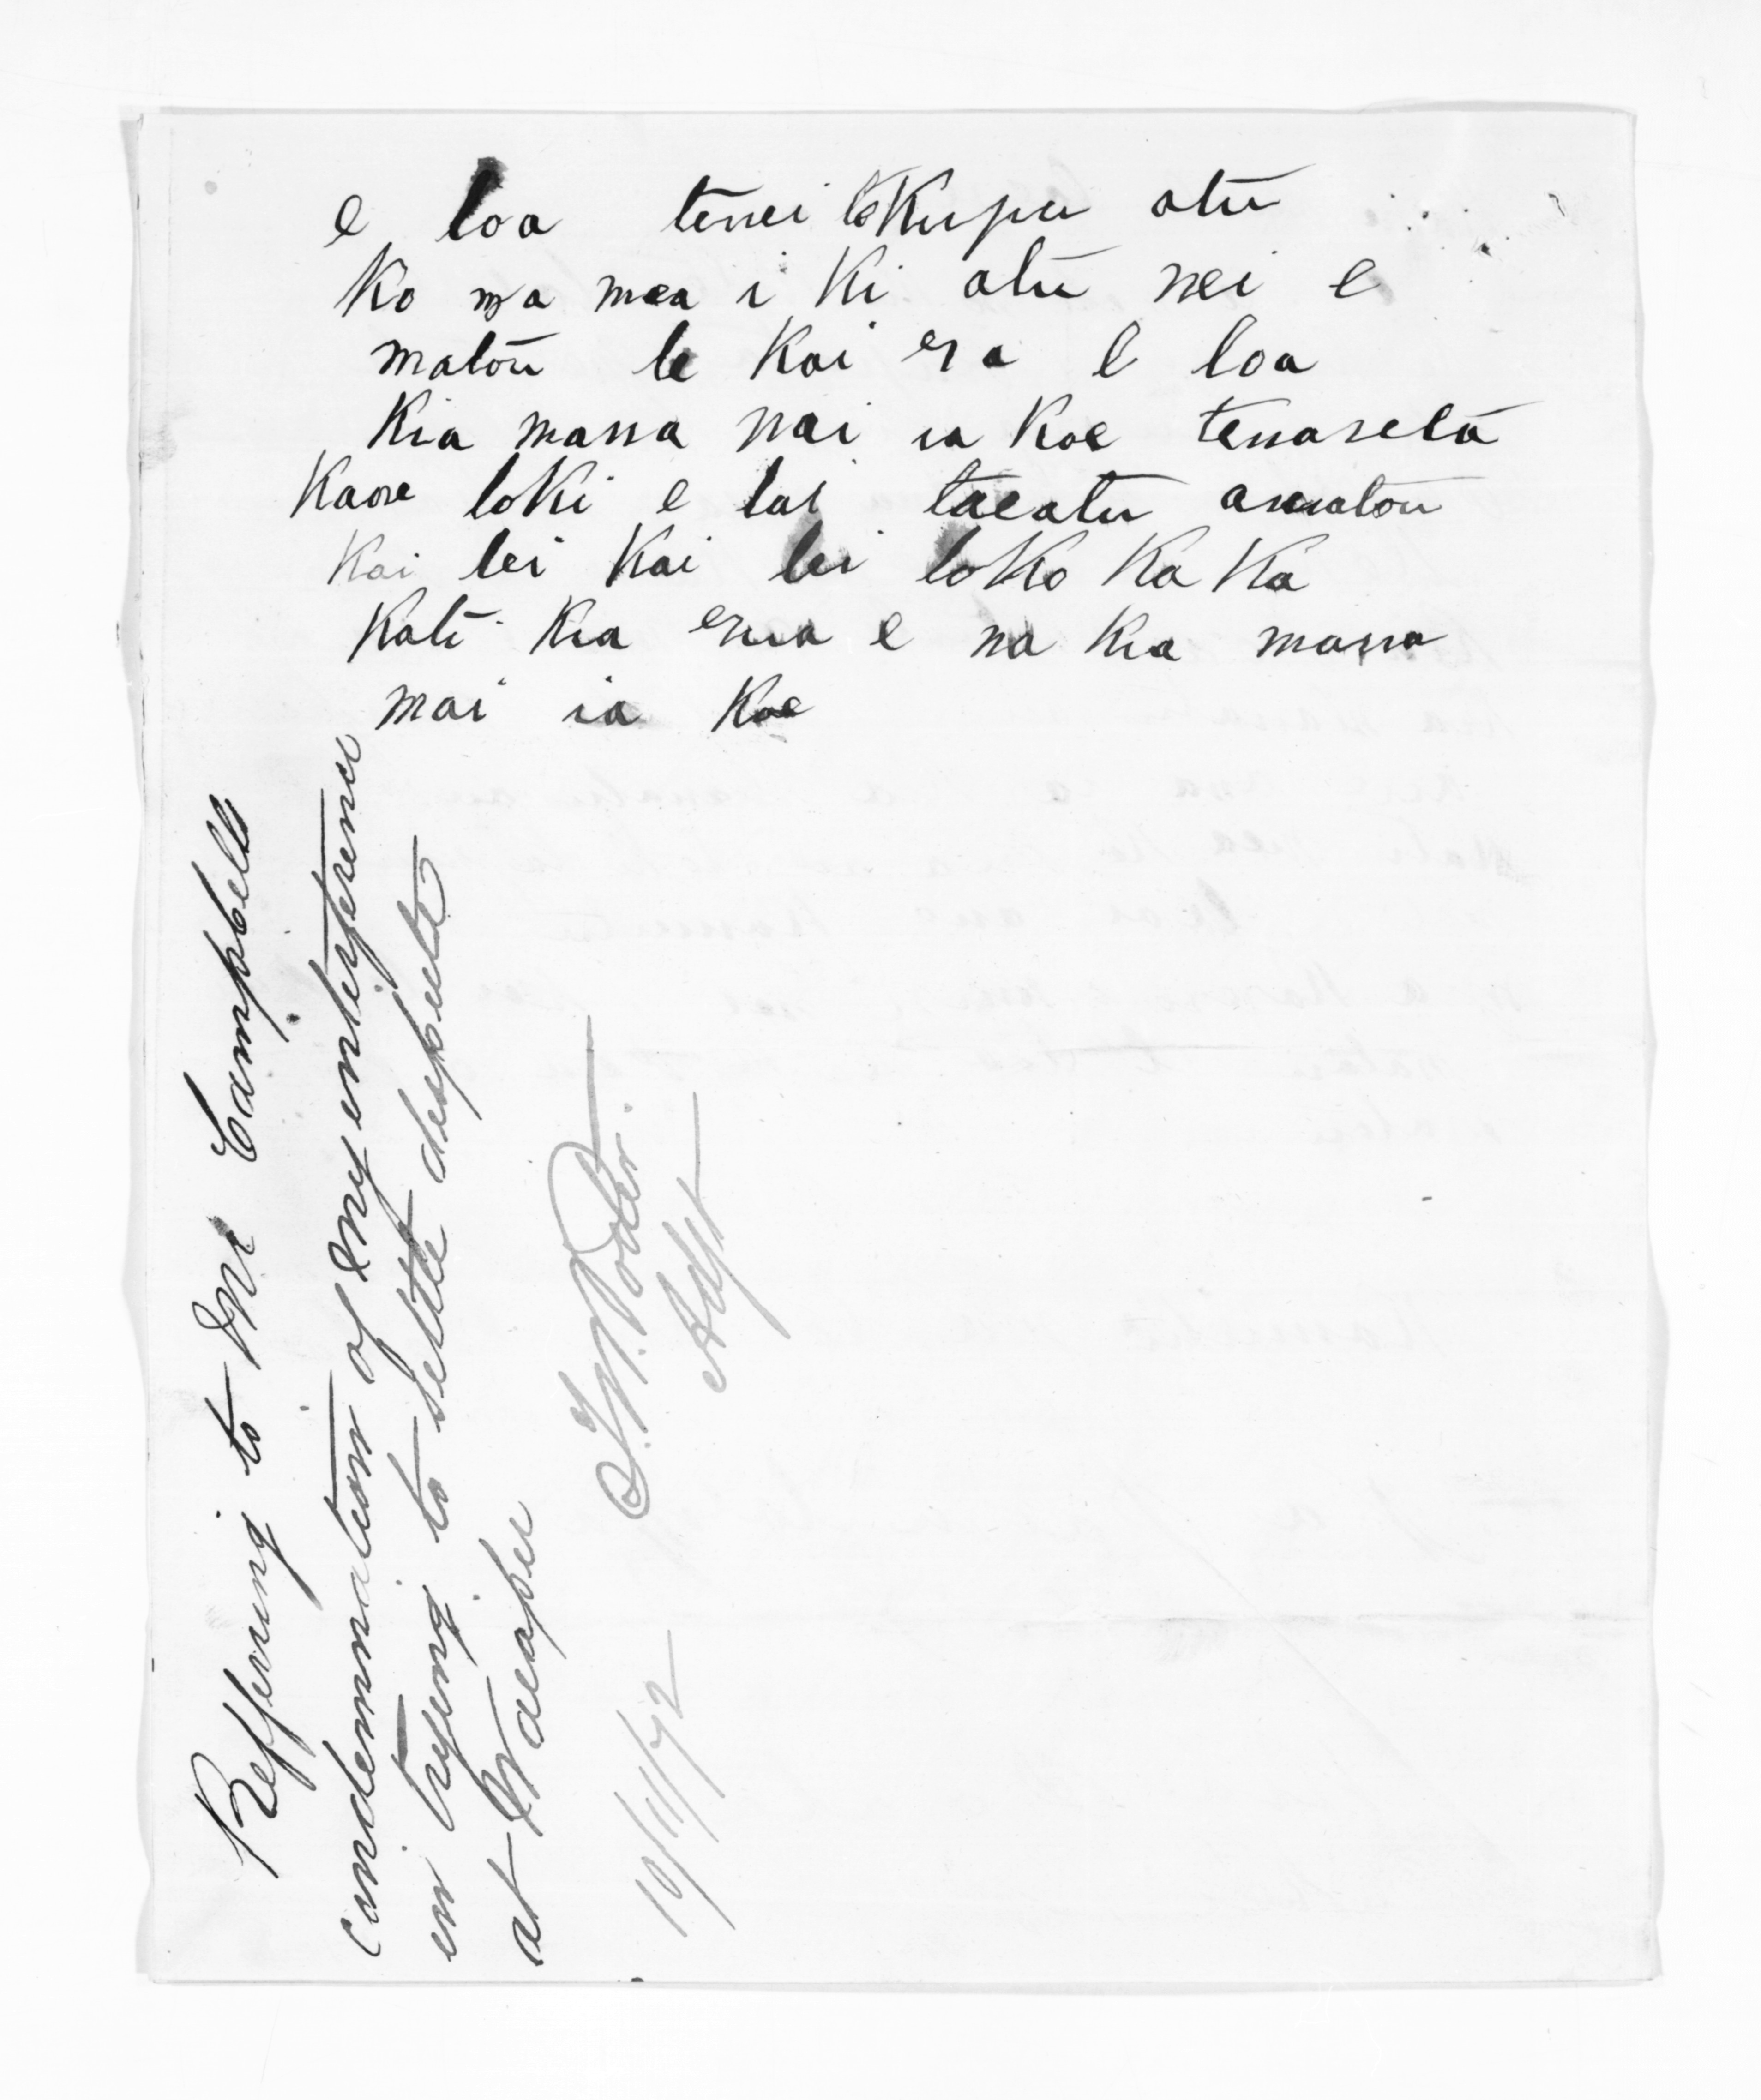 e toa tenei tokupu atu
Ko ma mea i Ki atu nei e
matou te Kai era e toa
Kia mana mai ia Koe tenaretā
Kaore toki e tai taeatu amatou
Kai tei Kai tei toko Ka Ka
Kati Kia ena e na Kia mana
mai ia Koe
Reffering to Mr Campbells
candemnation of my enterference
in trying to settle despute
at Waiapu
T. W. Porter
Adjt
10/11/72